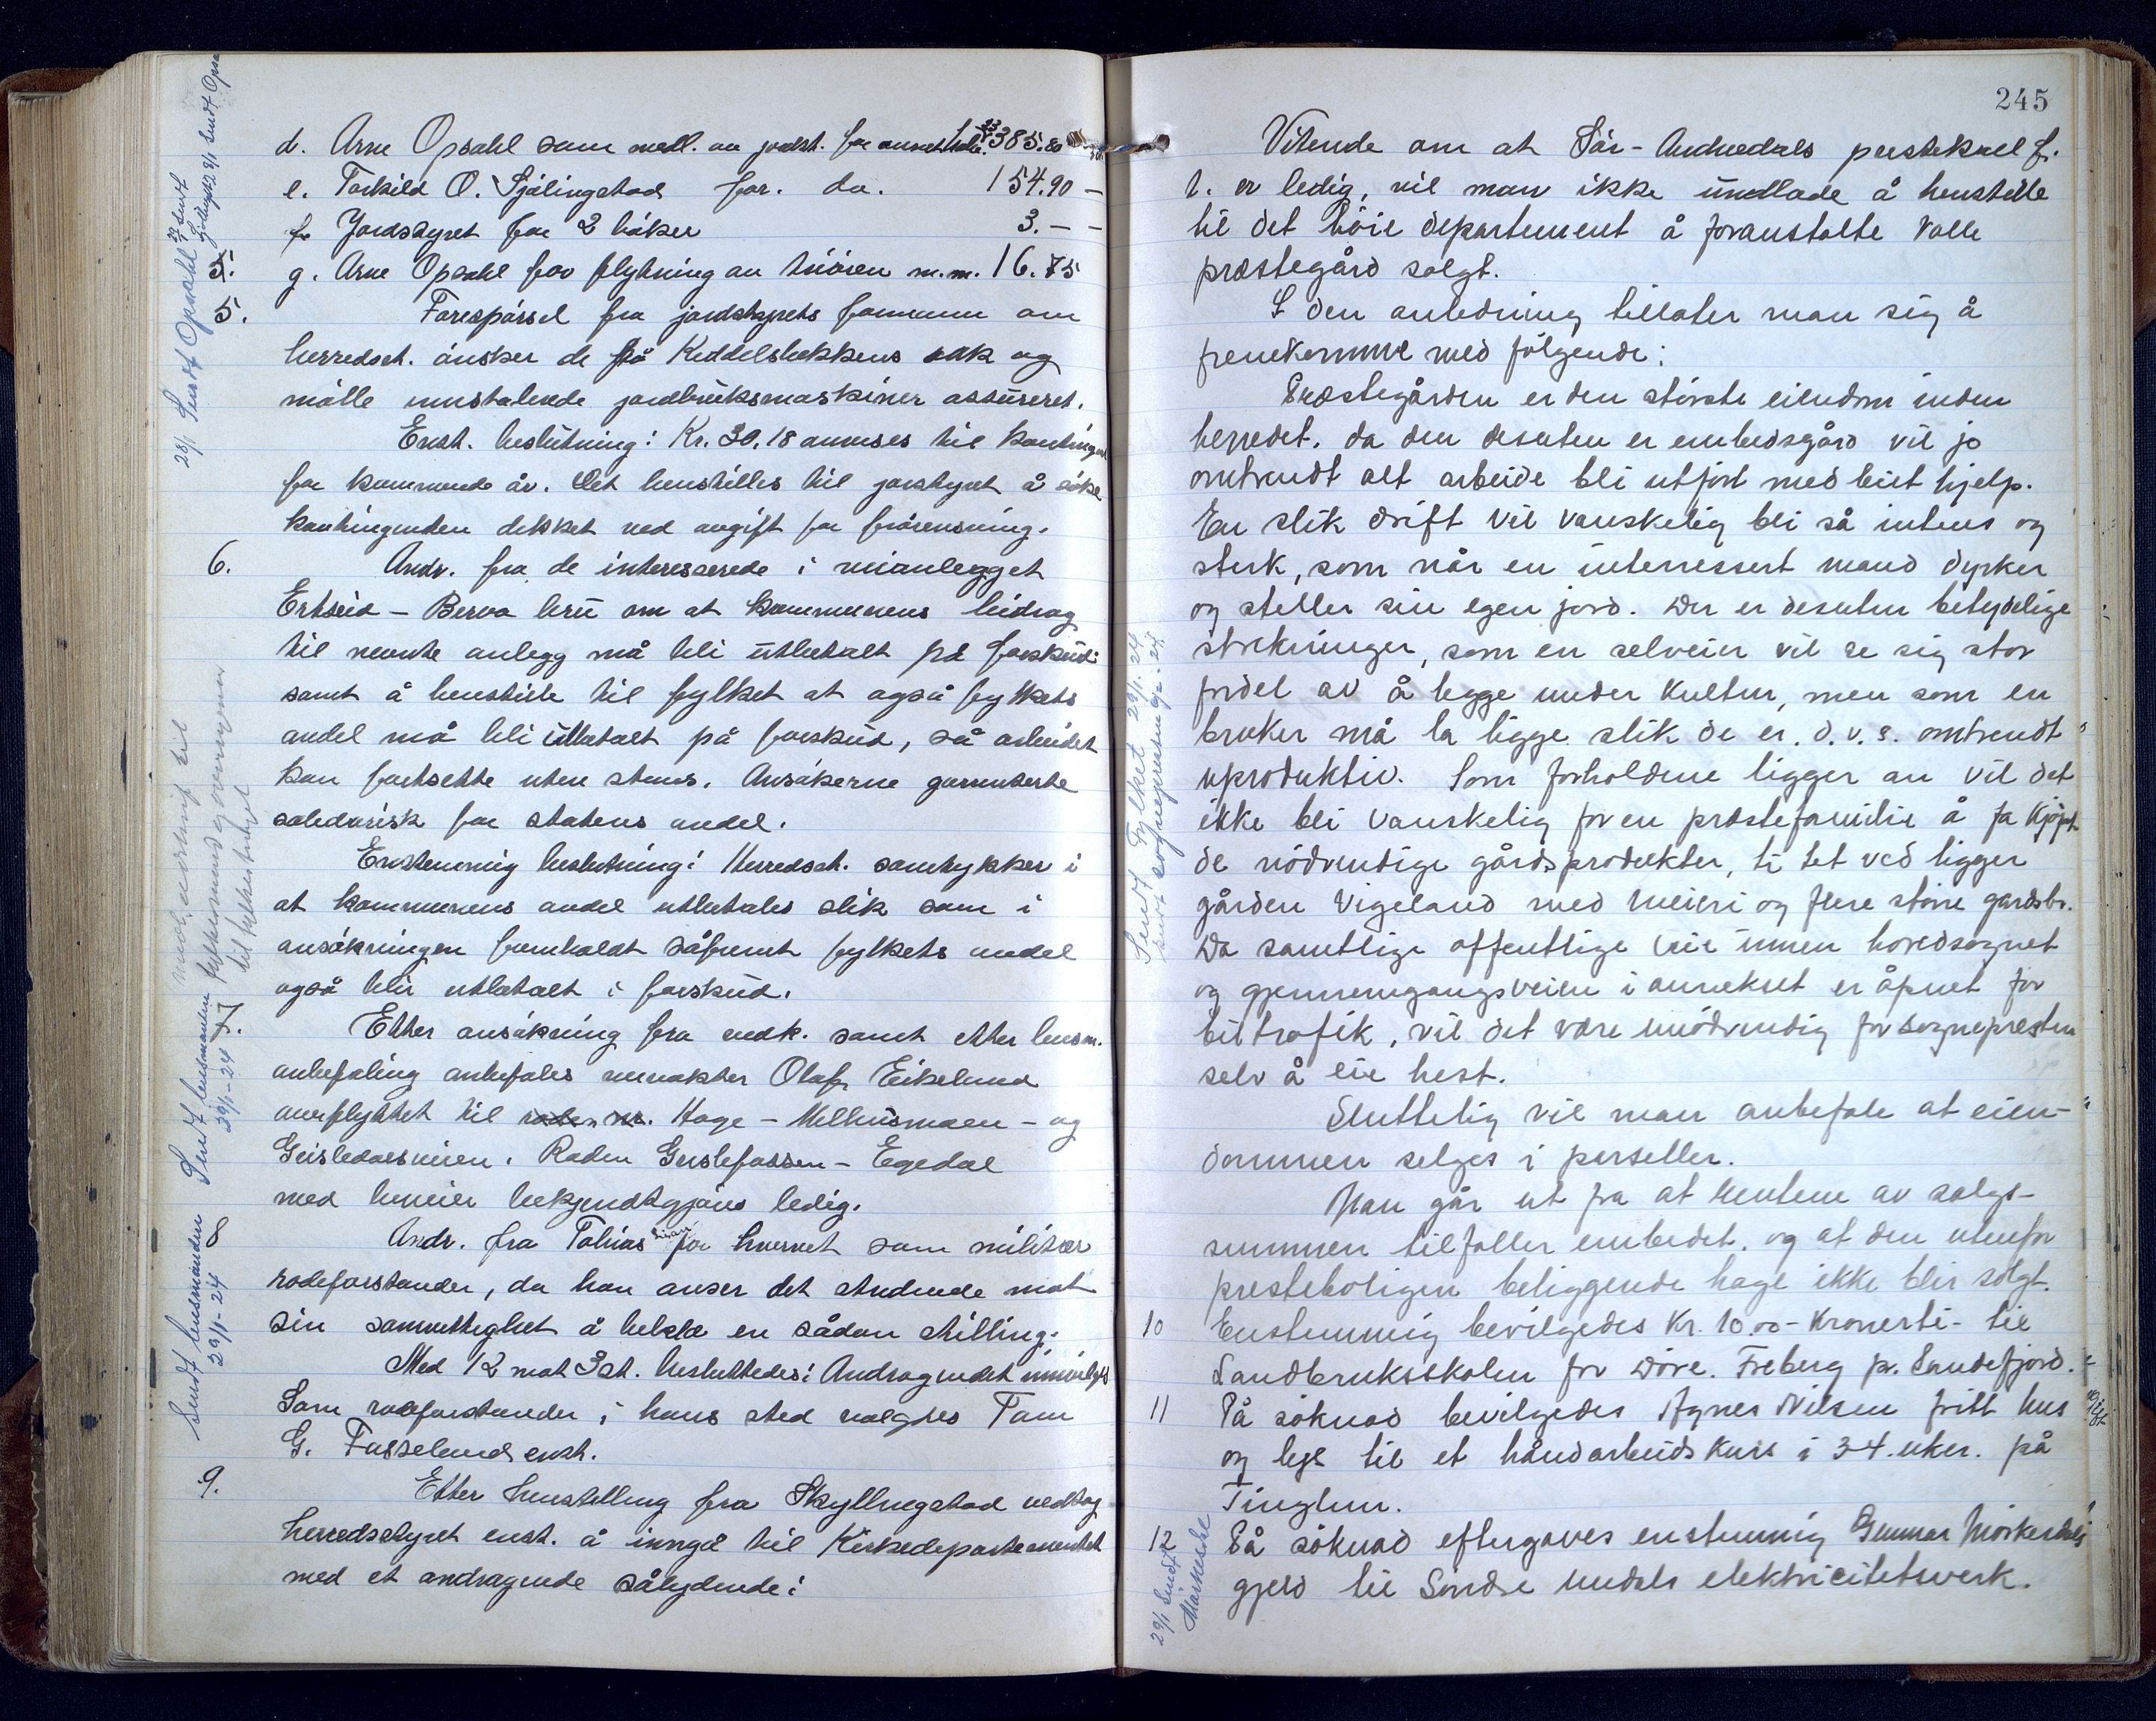 d. Arne Opsahl som medl. av jordst. for annet halv. 385.80
e. Torkild O. Fjälingstad for. do. 154.90 -
f. Jordstyret for 2 böker 3. - -
g. Arne Opsahl for flytning av m.m. 16.75
5. Forespörsel fra jordstyrets formann om
herredsst. önsker de på Keddelsbekkens sak og
mölle innstalerede jordbruksmaskiner assureret.
Enst. beslutning: Kr. 30.18 anvises til kontingent
for kommende år. Det henstilles til jorstyret å söke
kontingenten dekket ved avgift for frörensning.
6. Andr. fra de interesserede i veianlegget
Ertseid - Berva bru om at kommunens bidrag
til nevnte anlegg må bli utbetalt på forskud
samt å henstille til fylket at også fylkets
andel må bli utbetalt på forskud, så arbeidet
kan fortsette uten stans. Ansökerne garanterte
solidarisk for statens andel.
Enstemmig beslutning: Herredsst. samtykker i
at kommunens andel utbetales slik som i
ansökningen forholdt såfremt fylkets andel
også blir utbetalt i forskud.
7. Etter ansökning fra vedk. samt etter lensm.
anbefaling anbefales veivakter Olaf Eikeland
overflyttet til roden nr. Hage - Melhusmoen - og
Geisledalsveien. Roden Geislefossen - Egedal
med bekjendtgjöres ledig.
8. Andr. fra Tobias for hvervet som militær
rodeforstander, da han anser det stridende mot
sin samvittighet å beklæ en sådan stilling.
Med 12 mot 3 st. besluttedes: Andragendet innvilges
Som rodeforstander i hans sted valgtes Tom
G. Fasseland enst.
9. Etter henstilling fra Skyllingstad vedtog
herredsstyret enst. å inngå til Kirkedepartementet
med et andragende sålydende:
28/1 Sendt Opsahl
Sendt lensmannen
29/1 - 24
Sendt lensmanden
29/1 - 24
245
Vitende om at Sör-Audnedals prestekall f.
t. er ledig, vil man ikke undlade å henstille
til det höie departement å foranstalte Valle
præstegård solgt.
I den anledning tillater man sig å
fremkomme med fölgende:
Præstegården er den störste eiendom inden
herredet. da den desuten er embedsgård vil jo
omtrendt alt arbeide bli utfört med leiet hjelp.
En slik drift vil vanskelig bli så intens og
sterk, som når en interressert mand dyrker
og steller sin egen jord. Der er desuten betydelige
strekninger, som en selveier vil se sig stor
fordel av å legge under kultur, men som en
bruker må la ligge slik de er. d.v.s. omtrendt
uproduktiv. Som forholdene ligger an vil det
ikke bli vanskelig for en prestefamilie å fa kjöpt
de nödvendige gårdsprodukter, ti tet ved ligger
gården Vigeland med meieri og flere större gardsbr.
Da samtlige offentlige veie innen hovedsognet
og gjennemgangsveien i annekset er åpnet for
biltrafik, vil det være unödvendig for sognepresten
selv å eie hest.
Sluttelig vil man anbefale at eien-
dommen selges i parseller.
Man går ut fra at rentene av salgs-
summen tilfaller embedet. og at den utenfor
presteboligen beliggende hage ikke blir solgt.
10 Enstemmig bevilgedes Kr. 10.00 - Kronerti - til
Landbruksskolen for Döve. Freberg pr. Sandefjord.
11 På söknad bevilgedes Agnes Nilsen fritt hus
og lys til et håndarbeidskurs i 3-4. uker. på
Tinglun.
12 På söknad eftergaves enstemmig Gunnar Mörkesdals
gjeld til Söndre Undals elektricitetsverk.
Sendt Fylket 29/1 - 24
sendt sognepresten - 24
29/1 Sendt